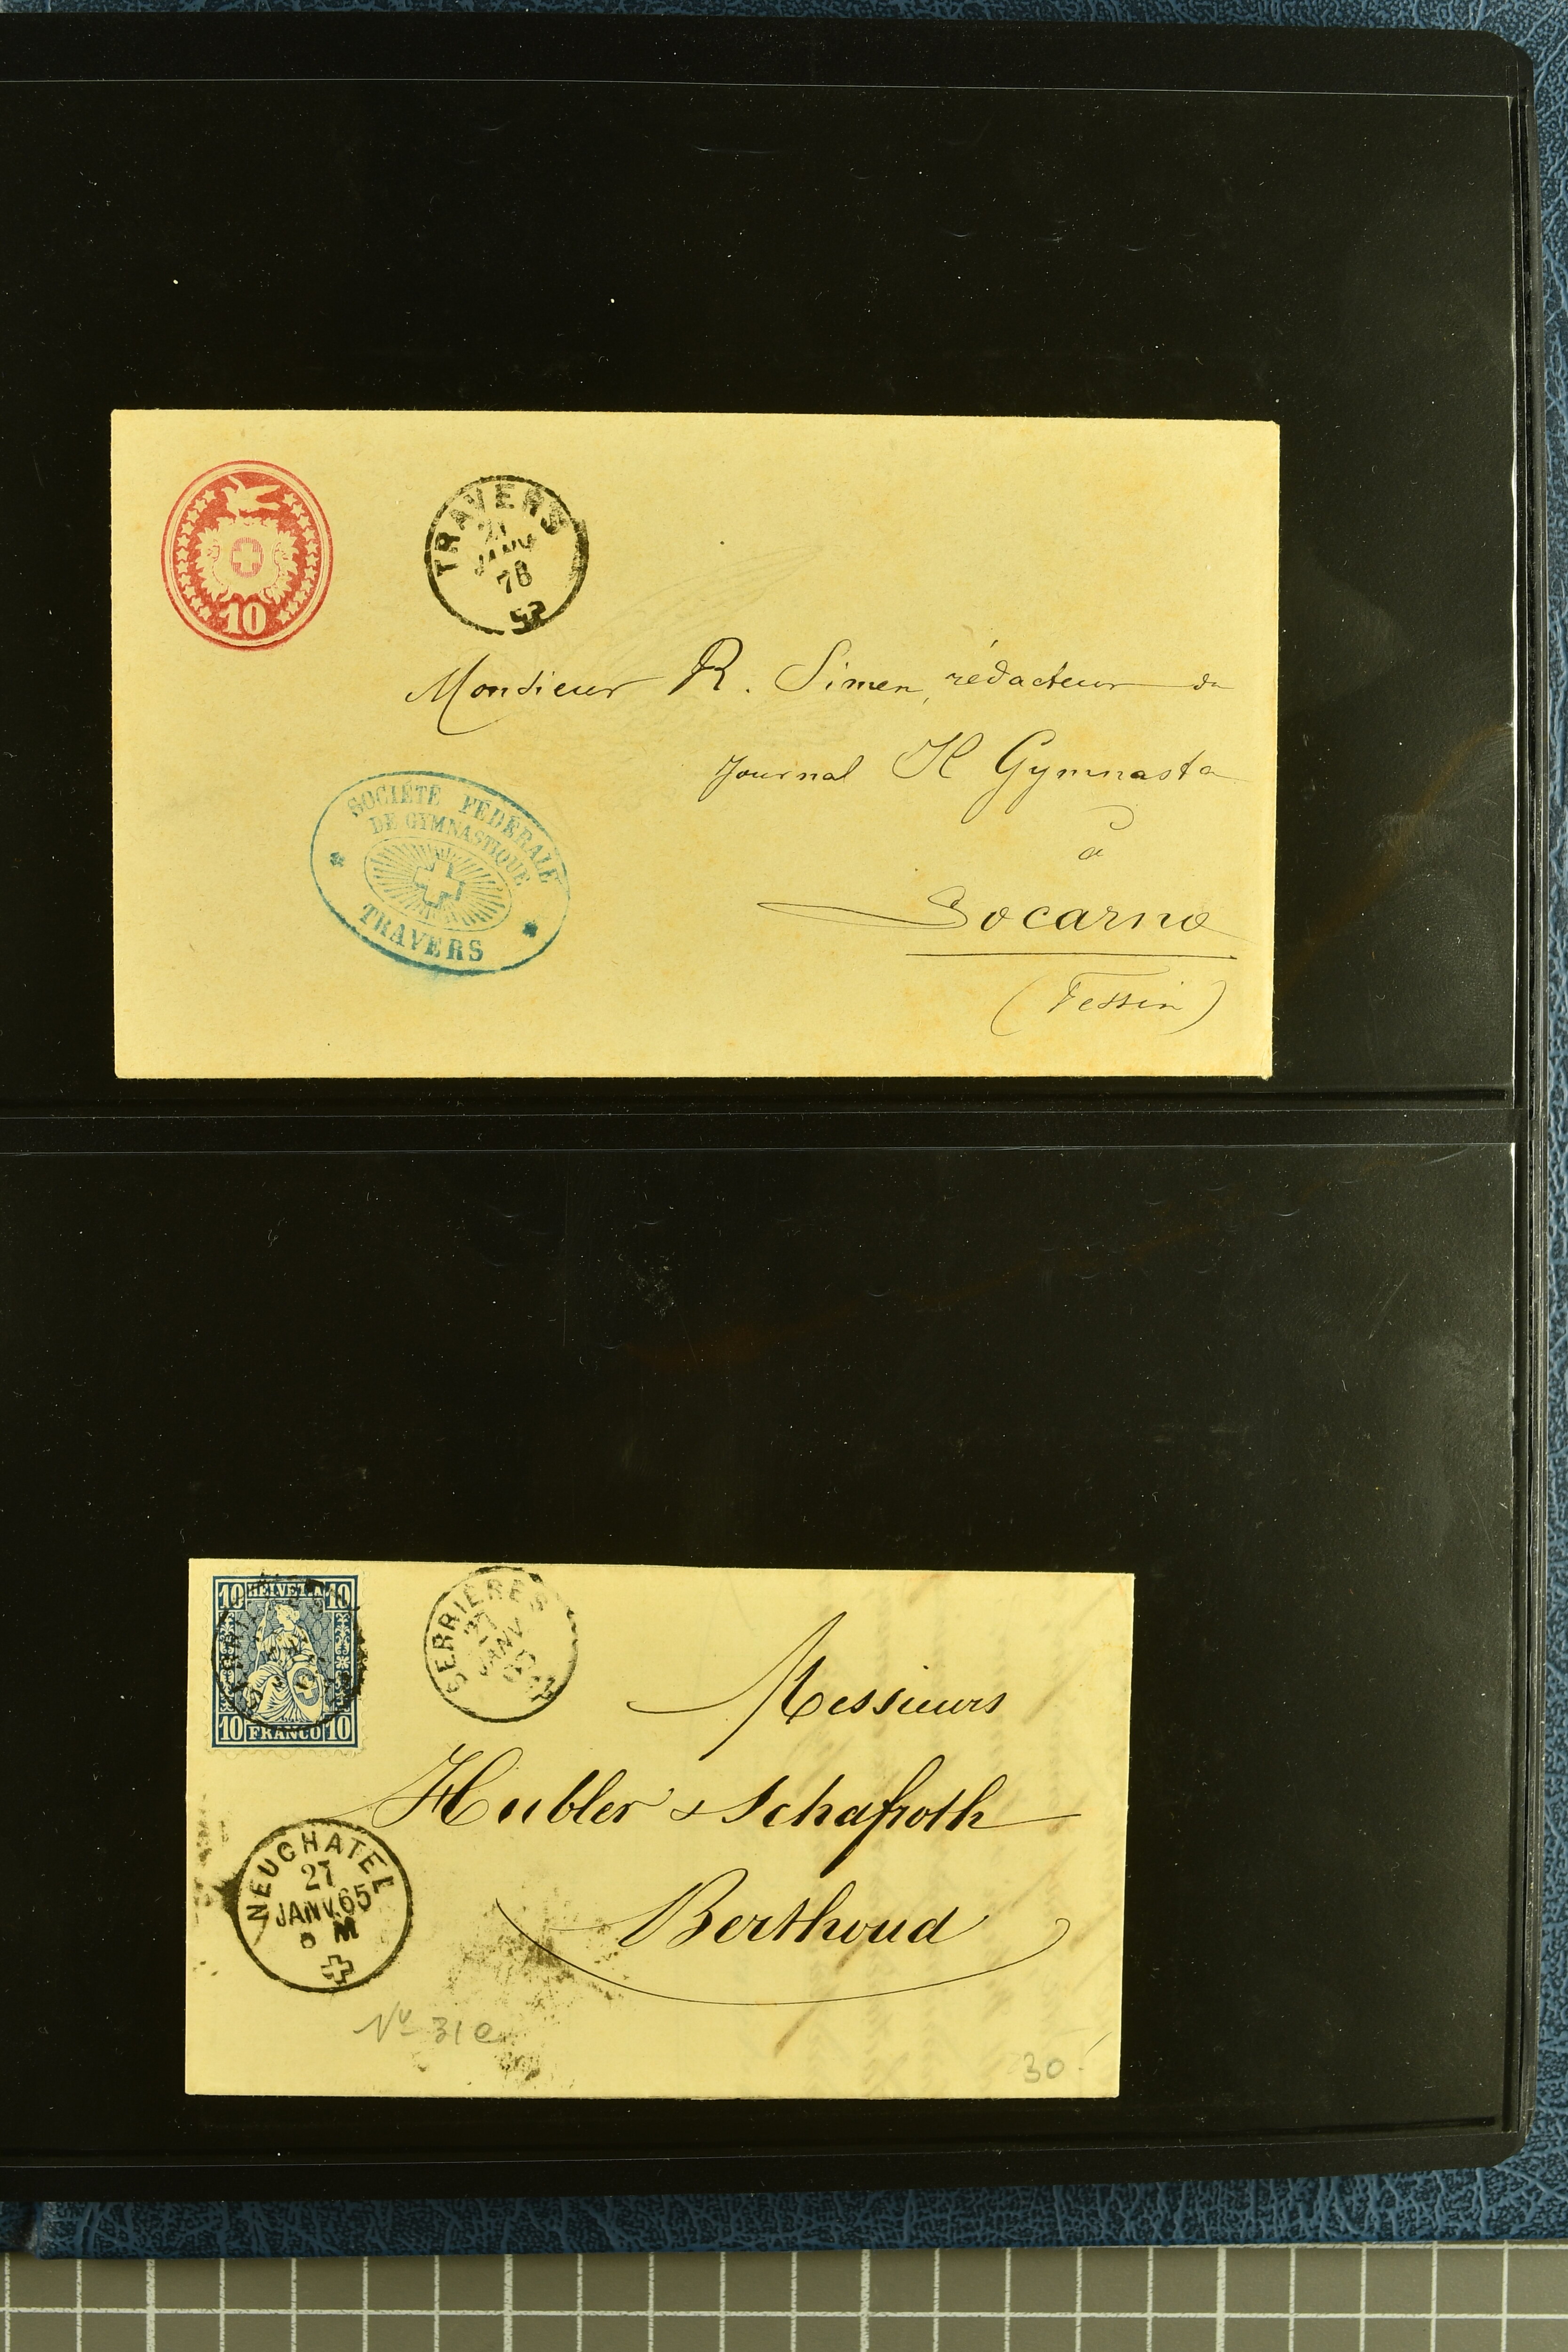 10
TRAVERS
JANV
78
Monsieur R. Simen, rédacteur du
journal Il Gymnasta
à
Locarno
(Tessin)
SOCIÉTÉ FÉDÉRALE
DE GYMNASTIQUE
TRAVERS
10 HELVETIA 10
10 FRANCO 10
SERRIÈRES
27
JANV
65
Messieurs
Hubler & Schafroth
Berthoud
NEUCHATEL
27
JANV. 65
M
No 31 e
30.